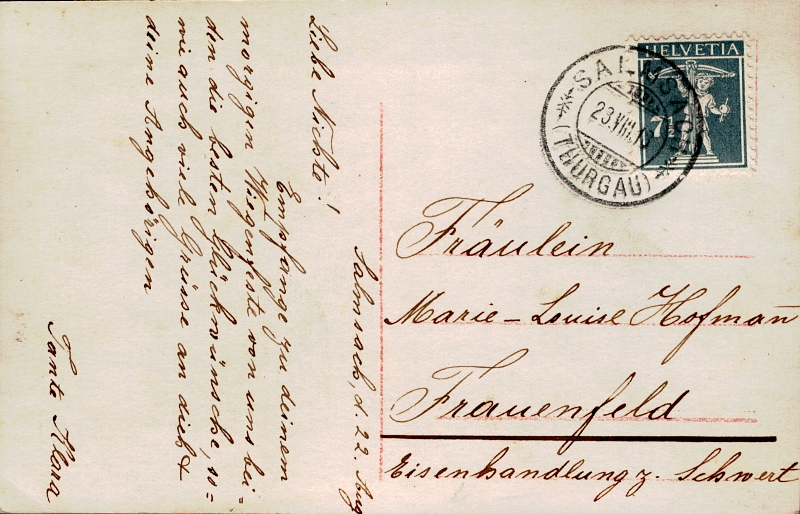 Salmsach, d. 22. Aug
Liebe Nichte!
Empfange zu deinem
morgigen Wiegenfeste von uns bei=
den die besten Glückwünsche, so=
wie auch viele Grüsse an dich &
deine Angehörigen
Tante Klara
HELVETIA
7½
SALMSACH
23.VIII.
(THURGAU)
Fräulein
Marie-Louise Hofmann
Frauenfeld
Eisenhandlung z. Schwert